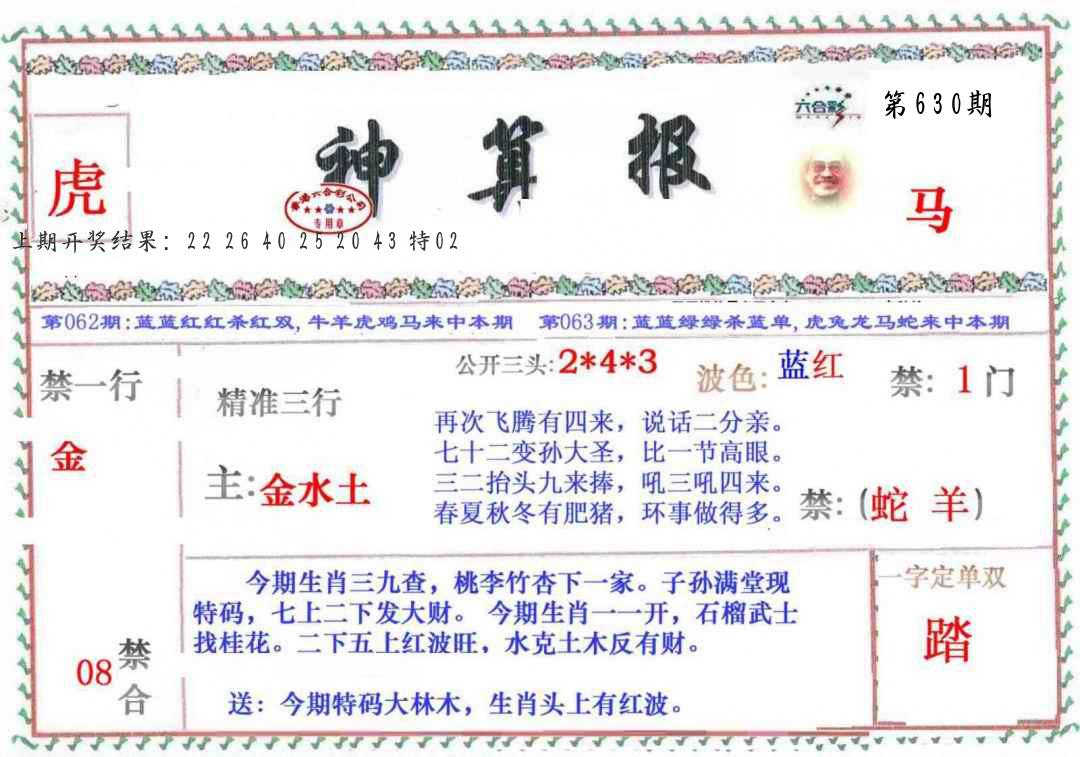 六合彩
第630期
神算报
香港六合彩公司
专用章
虎
马
上期开奖结果: 22 26 40 25 20 43 特02
第062期:蓝蓝红红杀红双,牛羊虎鸡马来中本期 第063期:蓝蓝绿绿杀蓝单,虎兔龙马蛇来中本期
禁一行
金
精准三行
主:金水土
公开三头:2*4*3
波色:蓝红
禁: 1门
再次飞腾有四来，说话二分亲。
七十二变孙大圣，比一节高眼。
三二抬头九来捧，吼三吼四来。
春夏秋冬有肥猪，环事做得多。
禁:(蛇 羊)
今期生肖三九查，桃李竹杏下一家。子孙满堂现
特码，七上二下发大财。 今期生肖一一开，石榴武士
找桂花。二下五上红波旺，水克土木反有财。
送：今期特码大林木，生肖头上有红波。
一字定单双
踏
08
禁合